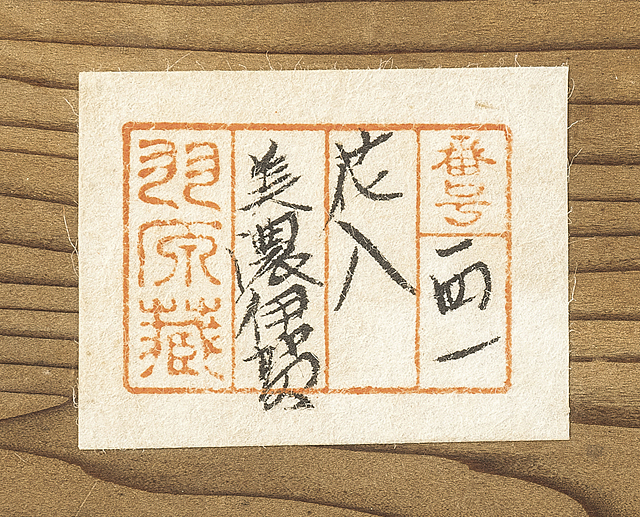 番号
一四一
花入
美濃伊賀
羽原藏